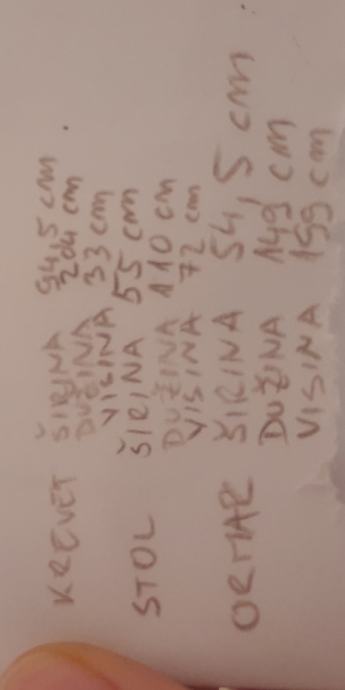 KREVET ŠIRINA 94,5 cm
DUŽINA 204 cm
VISINA 33 cm
STOL ŠIRINA 55 cm
DUŽINA 110 cm
VISINA 72 cm
ORMAR ŠIRINA 54,5 cm
DUŽINA 149 cm
VISINA 199 cm